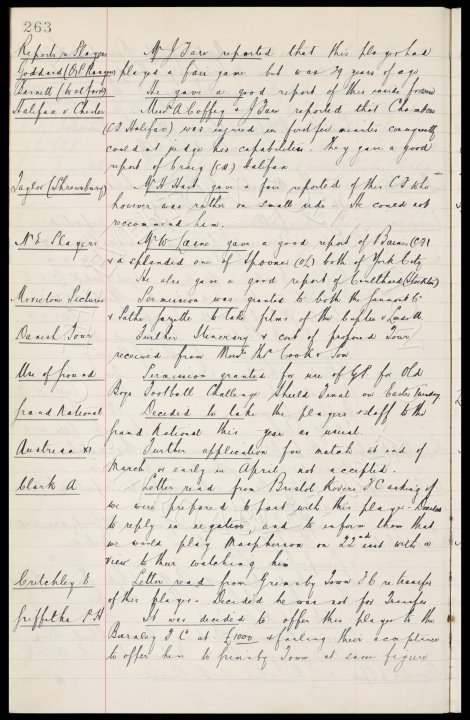 263
Reports re Players Mr J Fare reported that this player had
Goddard (Q P Rangers) played a fair game but was 29 years of age
Barnett (Watford) He gave a good report of this inside forward
Halifax v Chester Messrs A Coffey & J Fare reported that Chambers
(CF Halifax) was injured in first few minutes consequently
could not judge his capabilities. They gave a good
report of Craig (CH) Halifax
Taylor (Shrewsbury) Mr H Hart gave a fair reported of this CF who
however was rather on small side. He could not
recommend him.
N.E. Players Mr W Laine gave a good report of Baines (CF)
& a splendid one of Spooner (OL) both of York City.
He also gave a good report of Coulthard (Stockton)
Movietone Pictures Permission was granted to both the
& Pathe Gazette to take films of the Cuptie
Danish Tour Further Itinerary & cost of proposed Tour
received from Messrs Thos Cook & Son
Use of ground Permission granted for use of GP for Old
Boys Football Challenge Shield Final on Easter Tuesday
Grand National Decided to take the players & staff to the
Grand National this year as usual.
Austrian XI Further application for match at end of
March or early in April not accepted.
Clark A Letter read from Bristol Rovers F C asking if
we were prepared to part with this player. Decided
to reply in negative, and to inform them that
we would play Macpherson on 22nd inst with a
view to their watching him
Critchley E Letter read from Grimsby Town F C re transfer
of this player. Decided he was not for Transfer
Griffiths P H It was decided to offer this player to the
Barnsley F C at £1000 & failing their acceptance
to offer him to Grimsby Town at same figure